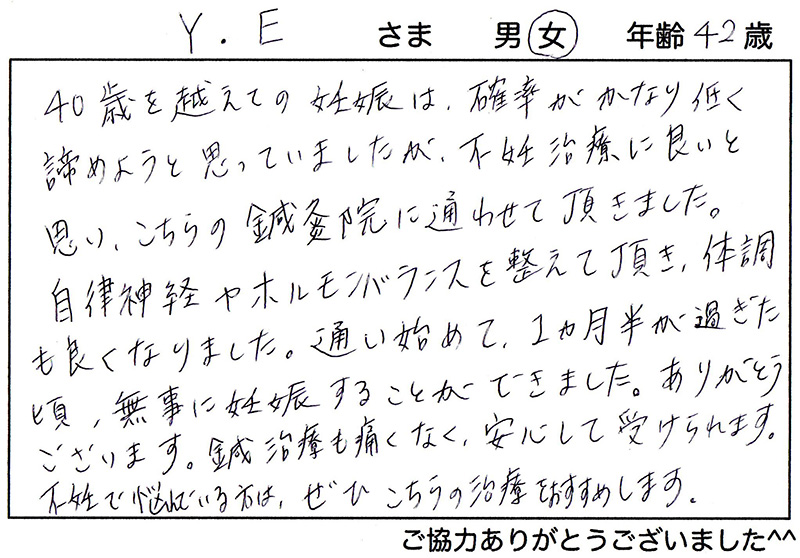 Y.E さま 男 女 年齢 42 歳
40歳を越えての妊娠は、確率がかなり低く
諦めようと思っていましたが、不妊治療に良いと
思い、こちらの鍼灸院に通わせて頂きました。
自律神経やホルモンバランスを整えて頂き、体調
も良くなりました。通い始めて、1ヵ月半が過ぎた
頃、無事に妊娠することができました。ありがとう
ございます。鍼治療も痛くなく、安心して受けられます。
不妊で悩んでいる方は、ぜひこちらの治療をおすすめします。
ご協力ありがとうございました^^